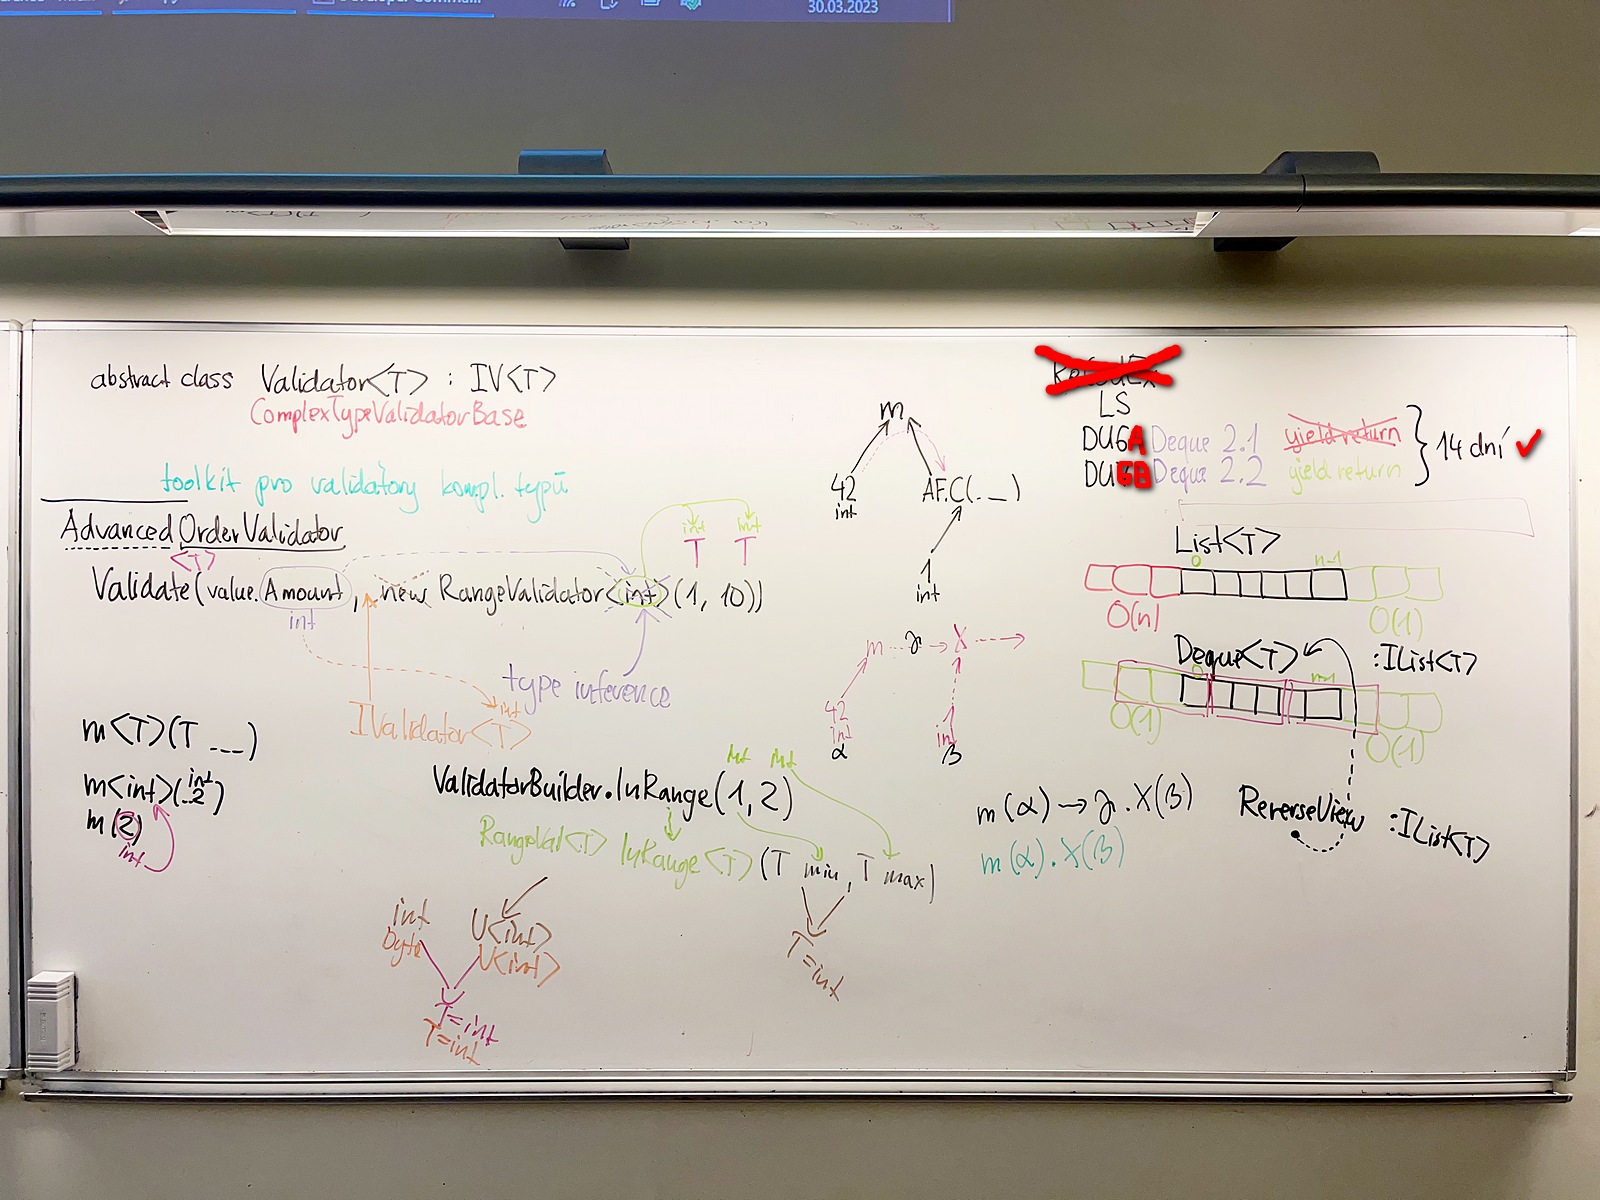 30.03.2023
abstract class Validator<T> : IV<T>
ComplexTypeValidatorBase
toolkit pro validátory kompl. typů
Advanced OrderValidator
<T>
Validate(value.Amount, new RangeValidator<int>(1, 10))
int
int int
T T
type inference
int
IValidator<T>
m<T>(T ---)
m<int>(..2)
int
m(2)
int
Int Int
ValidatorBuilder.InRange(1,2)
RangeVal<T> InRange<T>(T min, T max)
T=int
int U<int>
byte U<int>
T=int
T=int
m
42 AF.C(._)
int
1
int
m γ X
42 1
int int
α β
m(α) → γ.X(β)
m(α).X(β)
ReCodEx
LS
DU6A Deque 2.1 yield return
DU6B Deque 2.2 yield return
14 dní
List<T>
0 n-1
O(n) O(1)
Deque<T> :IList<T>
0 n-1
O(1) O(1)
ReverseView :IList<T>